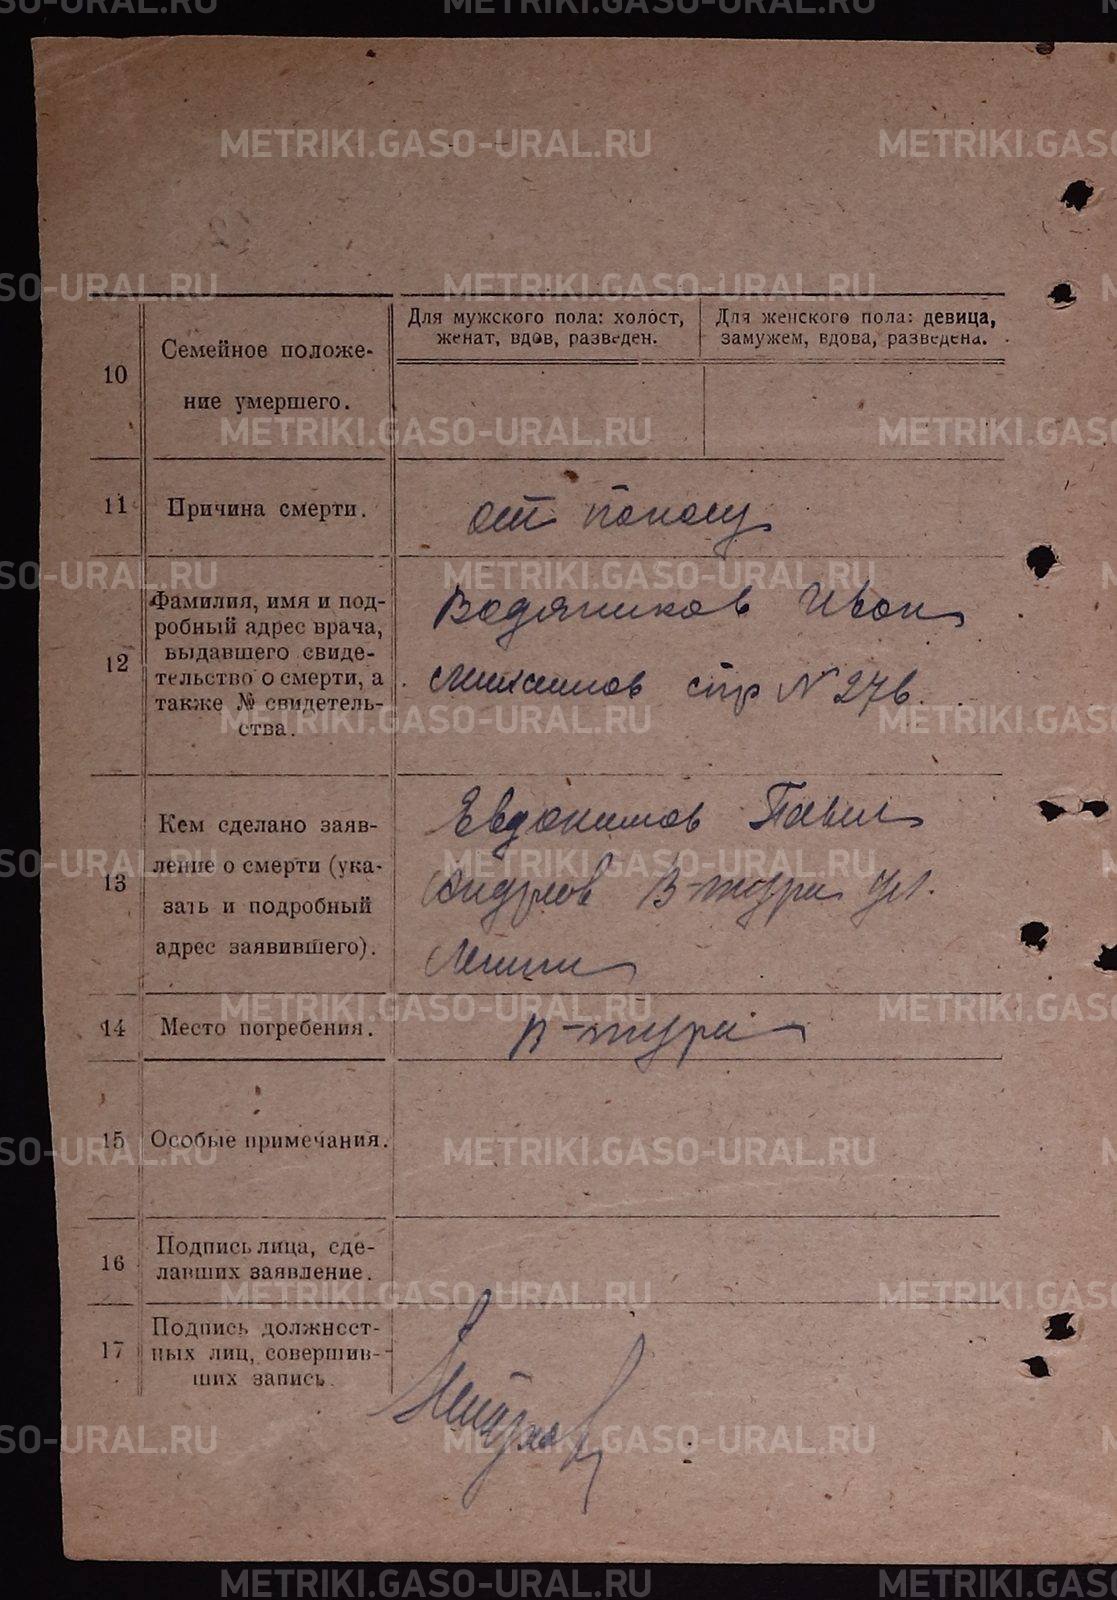 Для мужского пола: холост, женат, вдов, разведен.
Для женского пола: девица, замужем, вдова, разведена.
10
Семейное положе-
ние умершего.
11
Причина смерти.
от
12
Фамилия, имя и под-
робный адрес врача,
выдавшего свиде-
тельство о смерти, а
также № свидетель-
ства.
Водяников Иван
спр N 276.
13
Кем сделано заяв-
ление о смерти (ука-
зать и подробный
адрес заявившего).
Евдокимов Павел
В-тура ул.
Ленина
14
Место погребения.
В-тура
15
Особые примечания.
16
Подпись лица, сде-
лавших заявление.
17
Подпись должност-
ных лиц, совершив-
ших запись.
METRIKI.GASO-URAL.RU